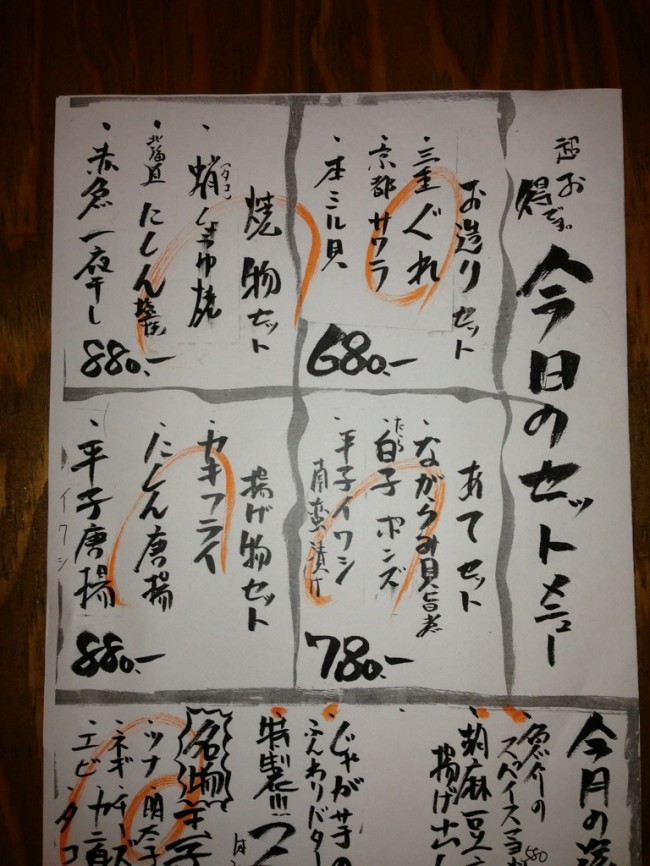 超お得です。
今日のセットメニュー
お造りセット
・三重ぐれ
・京都サワラ
・本ミル貝
680.-
焼物セット
・蛸
・北海道にしん塩焼
・赤魚一夜干し
880.-
あてセット
・ながらみ貝旨煮
・たら白子ポンズ
・平子イワシ南蛮漬け
780.-
揚げ物セット
・カキフライ
・にしん唐揚
・平子唐揚
イワシ
880.-
今月の
・魚介の
スペイスマヨ
580
・胡麻豆
揚げ出し
・じゃが芋の
ふんわりバター
・特製!!!
名物
・ツナ明太子
・ネギチーズ
・エビ